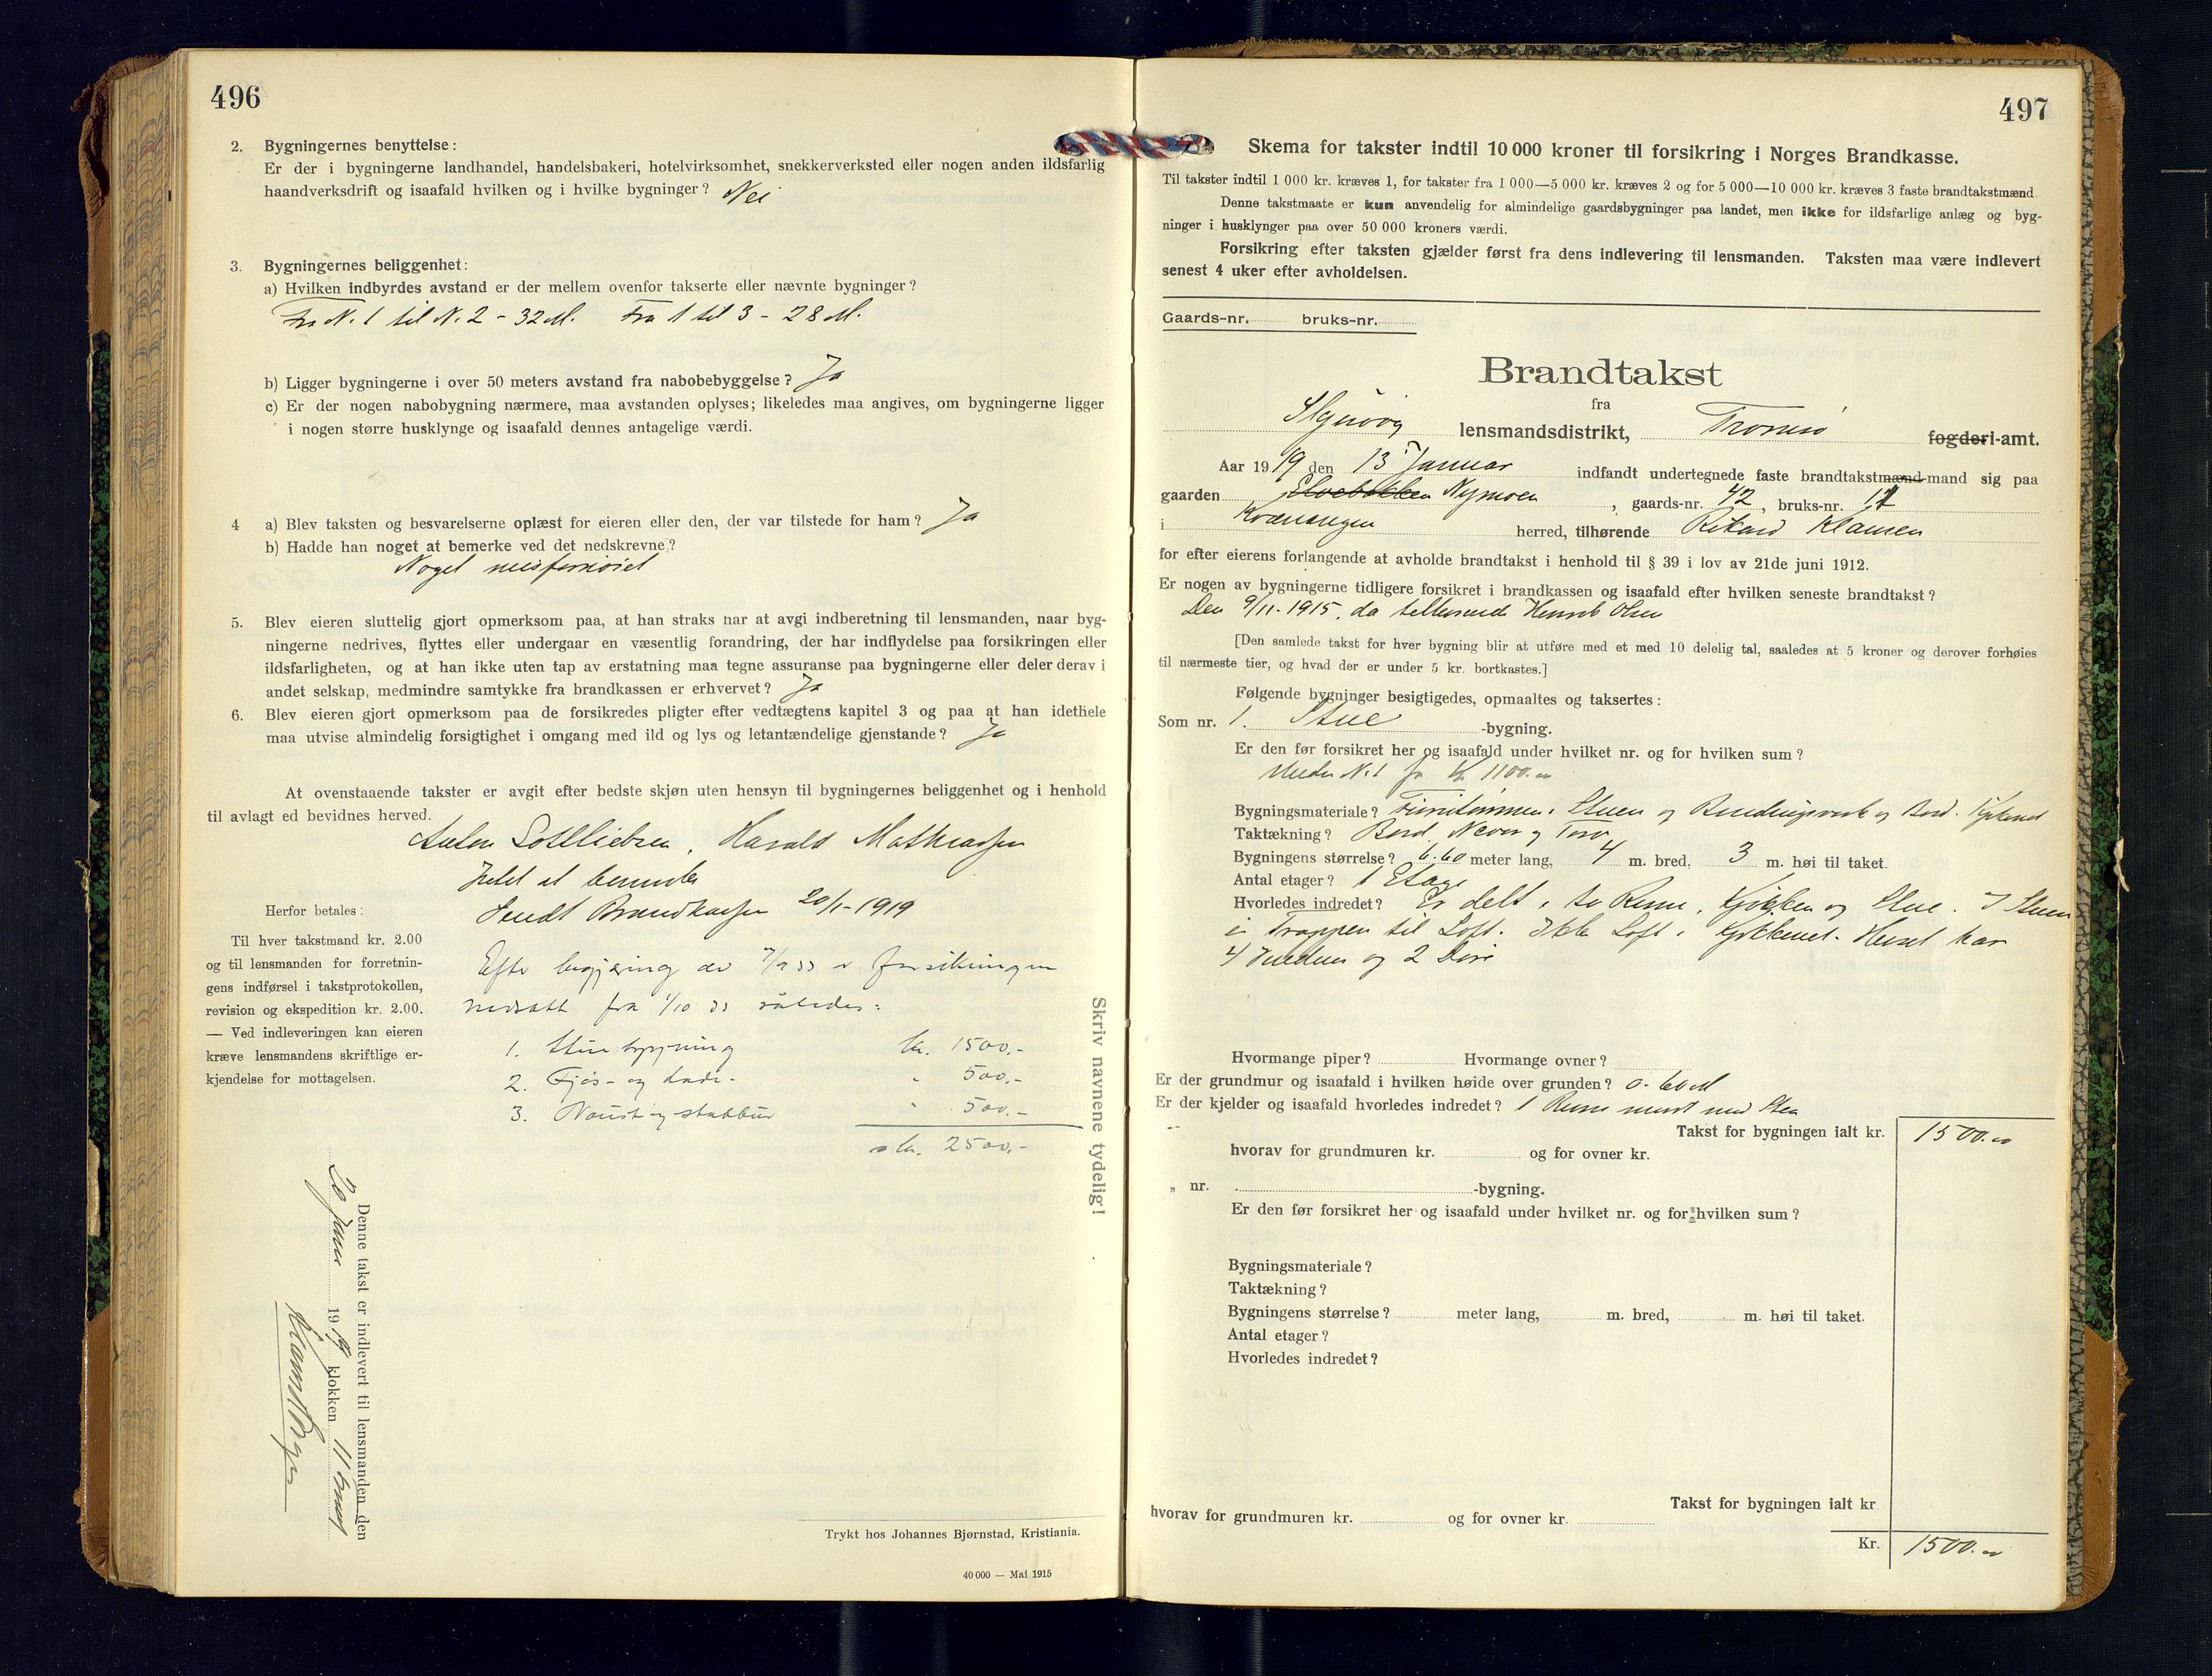 496
2. Bygningernes benyttelse:
Er der i bygningerne landhandel, handelsbakeri, hotelvirksomhet, snekkerverksted eller nogen anden ildsfarlig
haandverksdrift og isaafald hvilken og i hvilke bygninger? Nei
3. Bygningernes beliggenhet:
a) Hvilken indbyrdes avstand er der mellem ovenfor takserte eller nævnte bygninger?
Fra N. 1 til N. 2 - 32 M. Fra 1 til 3 - 28 M.
b) Ligger bygningerne i over 50 meters avstand fra nabobebyggelse? Ja
c) Er der nogen nabobygning nærmere, maa avstanden oplyses; likeledes maa angives, om bygningerne ligger
i nogen større husklynge og isaafald dennes antagelige værdi.
4 a) Blev taksten og besvarelserne oplæst for eieren eller den, der var tilstede for ham? Ja
b) Hadde han noget at bemerke ved det nedskrevne?
Noget misfornöiet
5. Blev eieren sluttelig gjort opmerksom paa, at han straks har at avgi indberetning til lensmanden, naar byg-
ningerne nedrives, flyttes eller undergaar en væsentlig forandring, der har indflydelse paa forsikringen eller
ildsfarligheten, og at han ikke uten tap av erstatning maa tegne assuranse paa bygningerne eller deler derav i
andet selskap, medmindre samtykke fra brandkassen er erhvervet? Ja
6. Blev eieren gjort opmerksom paa de forsikredes pligter efter vedtægtens kapitel 3 og paa at han idethele
maa utvise almindelig forsigtighet i omgang med ild og lys og letantændelige gjenstande? Ja
At ovenstaaende takster er avgit efter bedste skjøn uten hensyn til bygningernes beliggenhet og i henhold
til avlagt ed bevidnes herved.
Anton Gottliebsen, Harald Mathiassen
Intet at bemerke
Sendt Brandkassen 20/1-1919
Herfor betales:
Til hver takstmand kr. 2.00
og til lensmanden for forretnin-
gens indførsel i takstprotokollen,
revision og ekspedition kr. 2.00.
— Ved indleveringen kan eieren
kræve lensmandens skriftlige er-
kjendelse for mottagelsen.
Efter begjæring av 7/9 33 er forsikringen
nedsatt fra 1/10 33 således:
1. Stuebygning kr. 1500,-
2. Fjøs- og lade- " 500,-
3. Naust og stabbur " 500,-
kr. 2500,-
Skriv navnene tydelig!
Denne takst er indlevert til lensmanden den
20 Januar 1919 klokken 11 form
Trykt hos Johannes Bjørnstad, Kristiania.
40 000 — Mai 1915
497
Skema for takster indtil 10 000 kroner til forsikring i Norges Brandkasse.
Til takster indtil 1 000 kr. kræves 1, for takster fra 1 000—5 000 kr. kræves 2 og for 5 000—10 000 kr. kræves 3 faste brandtakstmænd.
Denne takstmaate er kun anvendelig for almindelige gaardsbygninger paa landet, men ikke for ildsfarlige anlæg og byg-
ninger i husklynger paa over 50 000 kroners værdi.
Forsikring efter taksten gjælder først fra dens indlevering til lensmanden. Taksten maa være indlevert
senest 4 uker efter avholdelsen.
Gaards-nr. bruks-nr.
Brandtakst
fra
Skjervøy lensmandsdistrikt, Tromsø fogderi-amt.
Aar 1919 den 13 Januar indfandt undertegnede faste brandtakstmænd-mand sig paa
gaarden Elvebakken Nymoen, gaards-nr. 42, bruks-nr. 17
i Kvænangen herred, tilhørende Rikard Klausen
for efter eierens forlangende at avholde brandtakst i henhold til § 39 i lov av 21de juni 1912.
Er nogen av bygningerne tidligere forsikret i brandkassen og isaafald efter hvilken seneste brandtakst?
Den 9/11-1915, da tilhørende Henrik Olsen
[Den samlede takst for hver bygning blir at utføre med et med 10 delelig tal, saaledes at 5 kroner og derover forhøies
til nærmeste tier, og hvad der er under 5 kr. bortkastes.]
Følgende bygninger besigtigedes, opmaaltes og taksertes:
Som nr. 1. Stue -bygning.
Er den før forsikret her og isaafald under hvilket nr. og for hvilken sum?
Under N. 1 for Kr 1100.00
Bygningsmateriale? Furutømmer i Stuen og Bindingsverk og Bord i Kjøkenet
Taktækning? Bord, Never og Torv
Bygningens størrelse? 6.60 meter lang, 4 m. bred, 3 m. høi til taket.
Antal etager? 1 Etage
Hvorledes indredet? Er delt i to Rum, Kjøkken og Stue. I Stuen
er Trappen til Loft. Ikke Loft i Kjøkkenet. Huset har
4 Vinduer og 2 Döre
Hvormange piper? Hvormange ovner?
Er der grundmur og isaafald i hvilken høide over grunden? 0.60 M
Er der kjelder og isaafald hvorledes indredet? 1 Rum muret med Sten
Takst for bygningen ialt kr. 1500.00
hvorav for grundmuren kr. og for ovner kr.
„ nr. -bygning.
Er den før forsikret her og isaafald under hvilket nr. og for hvilken sum?
Bygningsmateriale?
Taktækning?
Bygningens størrelse? meter lang, m. bred, m. høi til taket.
Antal etager?
Hvorledes indredet?
Takst for bygningen ialt kr
hvorav for grundmuren kr. og for ovner kr.
Kr. 1500.00